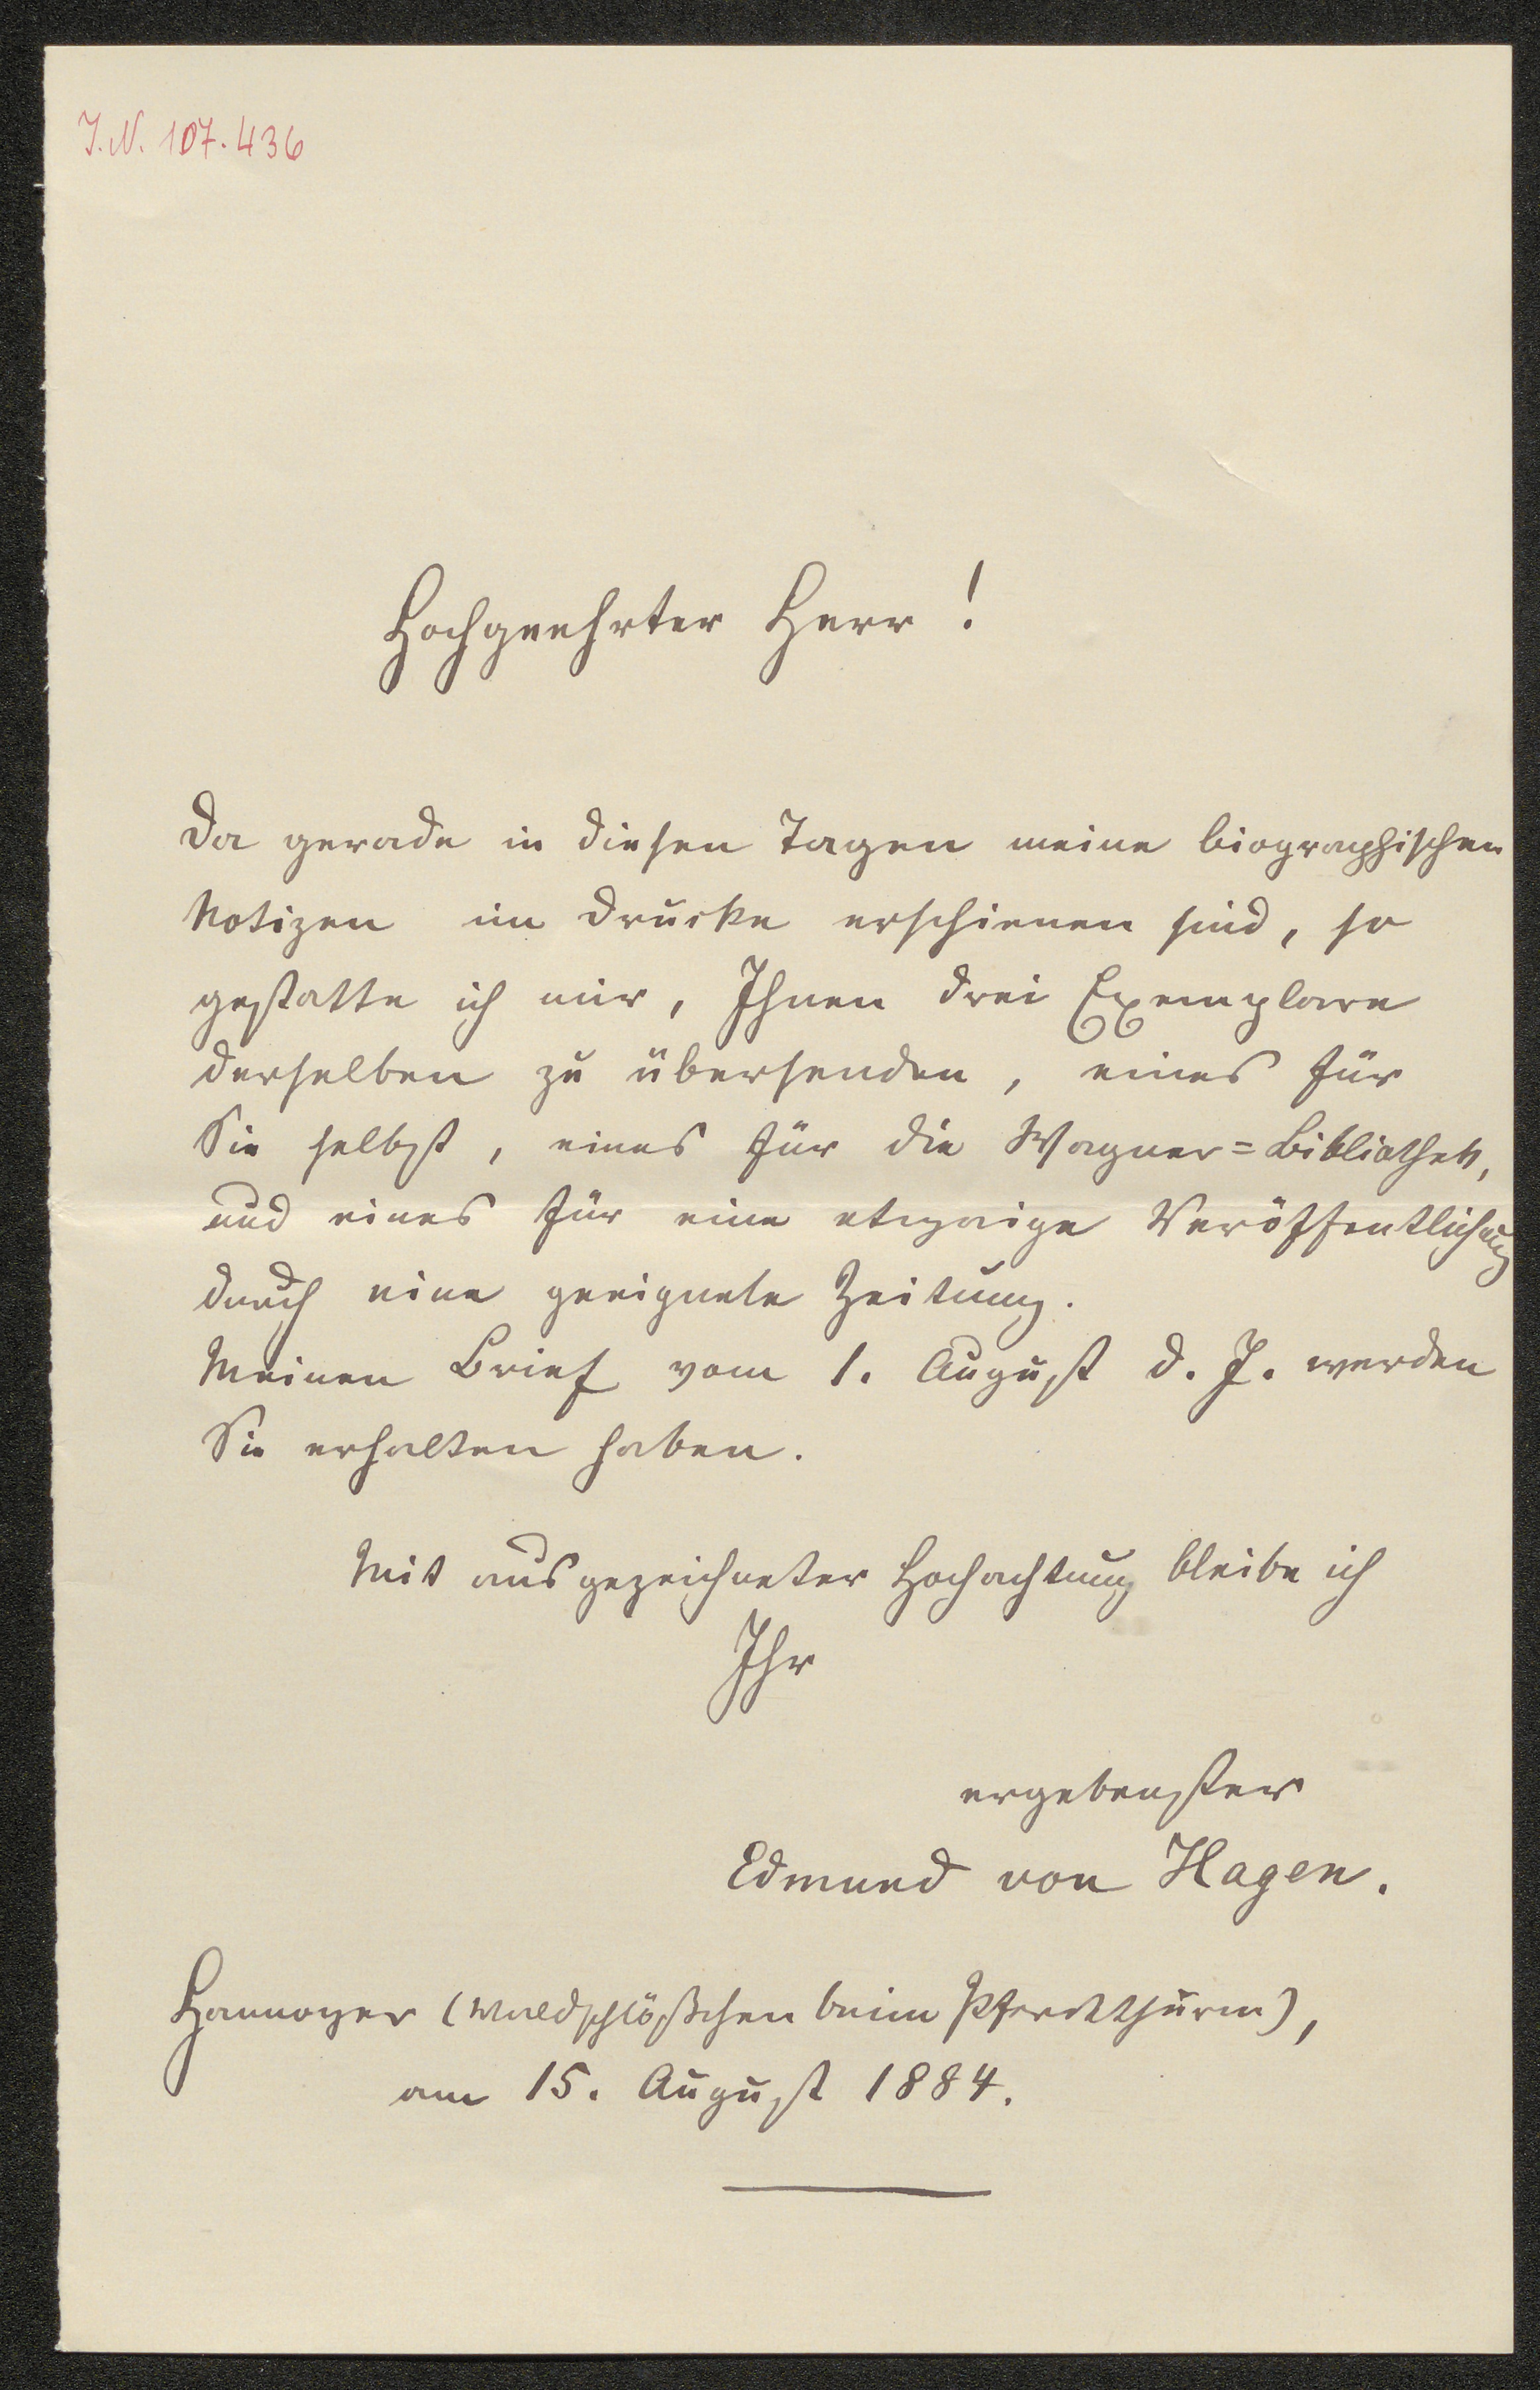 J.N. 107.436
Hochgeehrter Herr!
Da gerade in diesen Tagen meine biographischen
Notizen im Drucke erschienen sind, so
gestatte ich mir, Ihnen drei Exemplare
derselben zu übersenden, eines für
Sie selbst, eines für die Wagner=Bibliothek,
und eines für eine etwaige Veröffentlichung
durch eine geeignete Zeitung.
Meinen Brief vom 1. August d. J. werden
Sie erhalten haben.
Mit ausgezeichneter Hochachtung bleibe ich
Ihr
ergebenster
Edmund von Hagen.
Hannover (Waldschlößchen beim Pferdethurm),
am 15. August 1884.